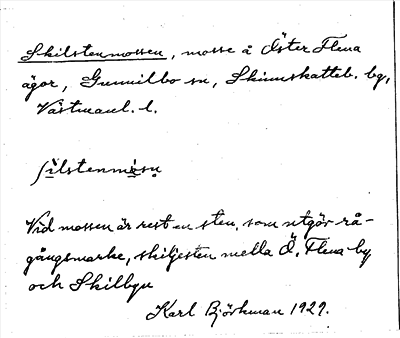 Skilstenmossen, mosse å Öster Flena
ägor, Gunnilbo sn, Skinnskatteb. bg,
Västmanl. l.
ʃilstenmosn
Vid mossen är rest en sten, som utgör rå-
gångsmarke, skiljesten mella Ö. Flena by
och Skilbyn
Karl Björkman 1929.